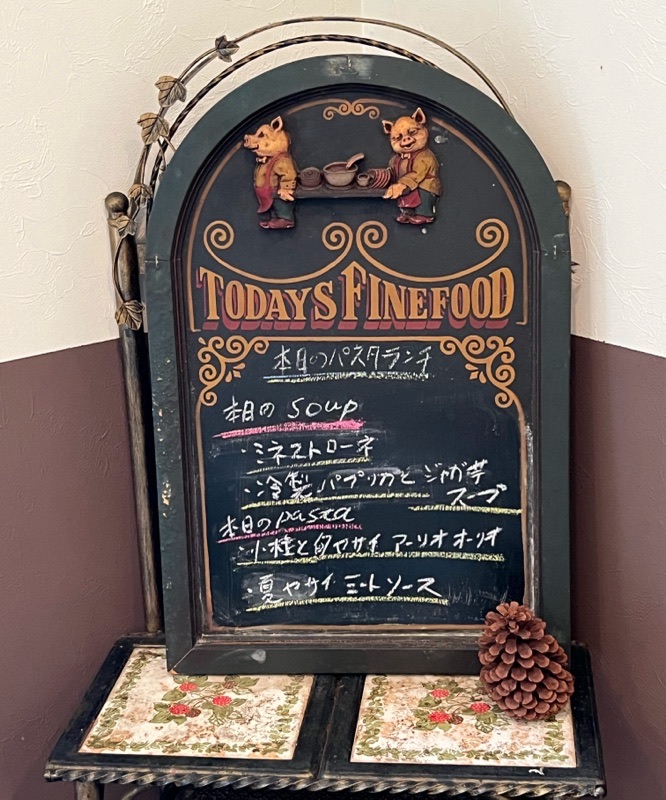 TODAY'S FINEFOOD
本日のパスタランチ
本日の soup
・ミネストローネ
・冷製 パプリカと ジャガ芋
スープ
本日のpasta
・小柱と旬ヤサイ アーリオオーリオ
・夏ヤサイ ミートソース